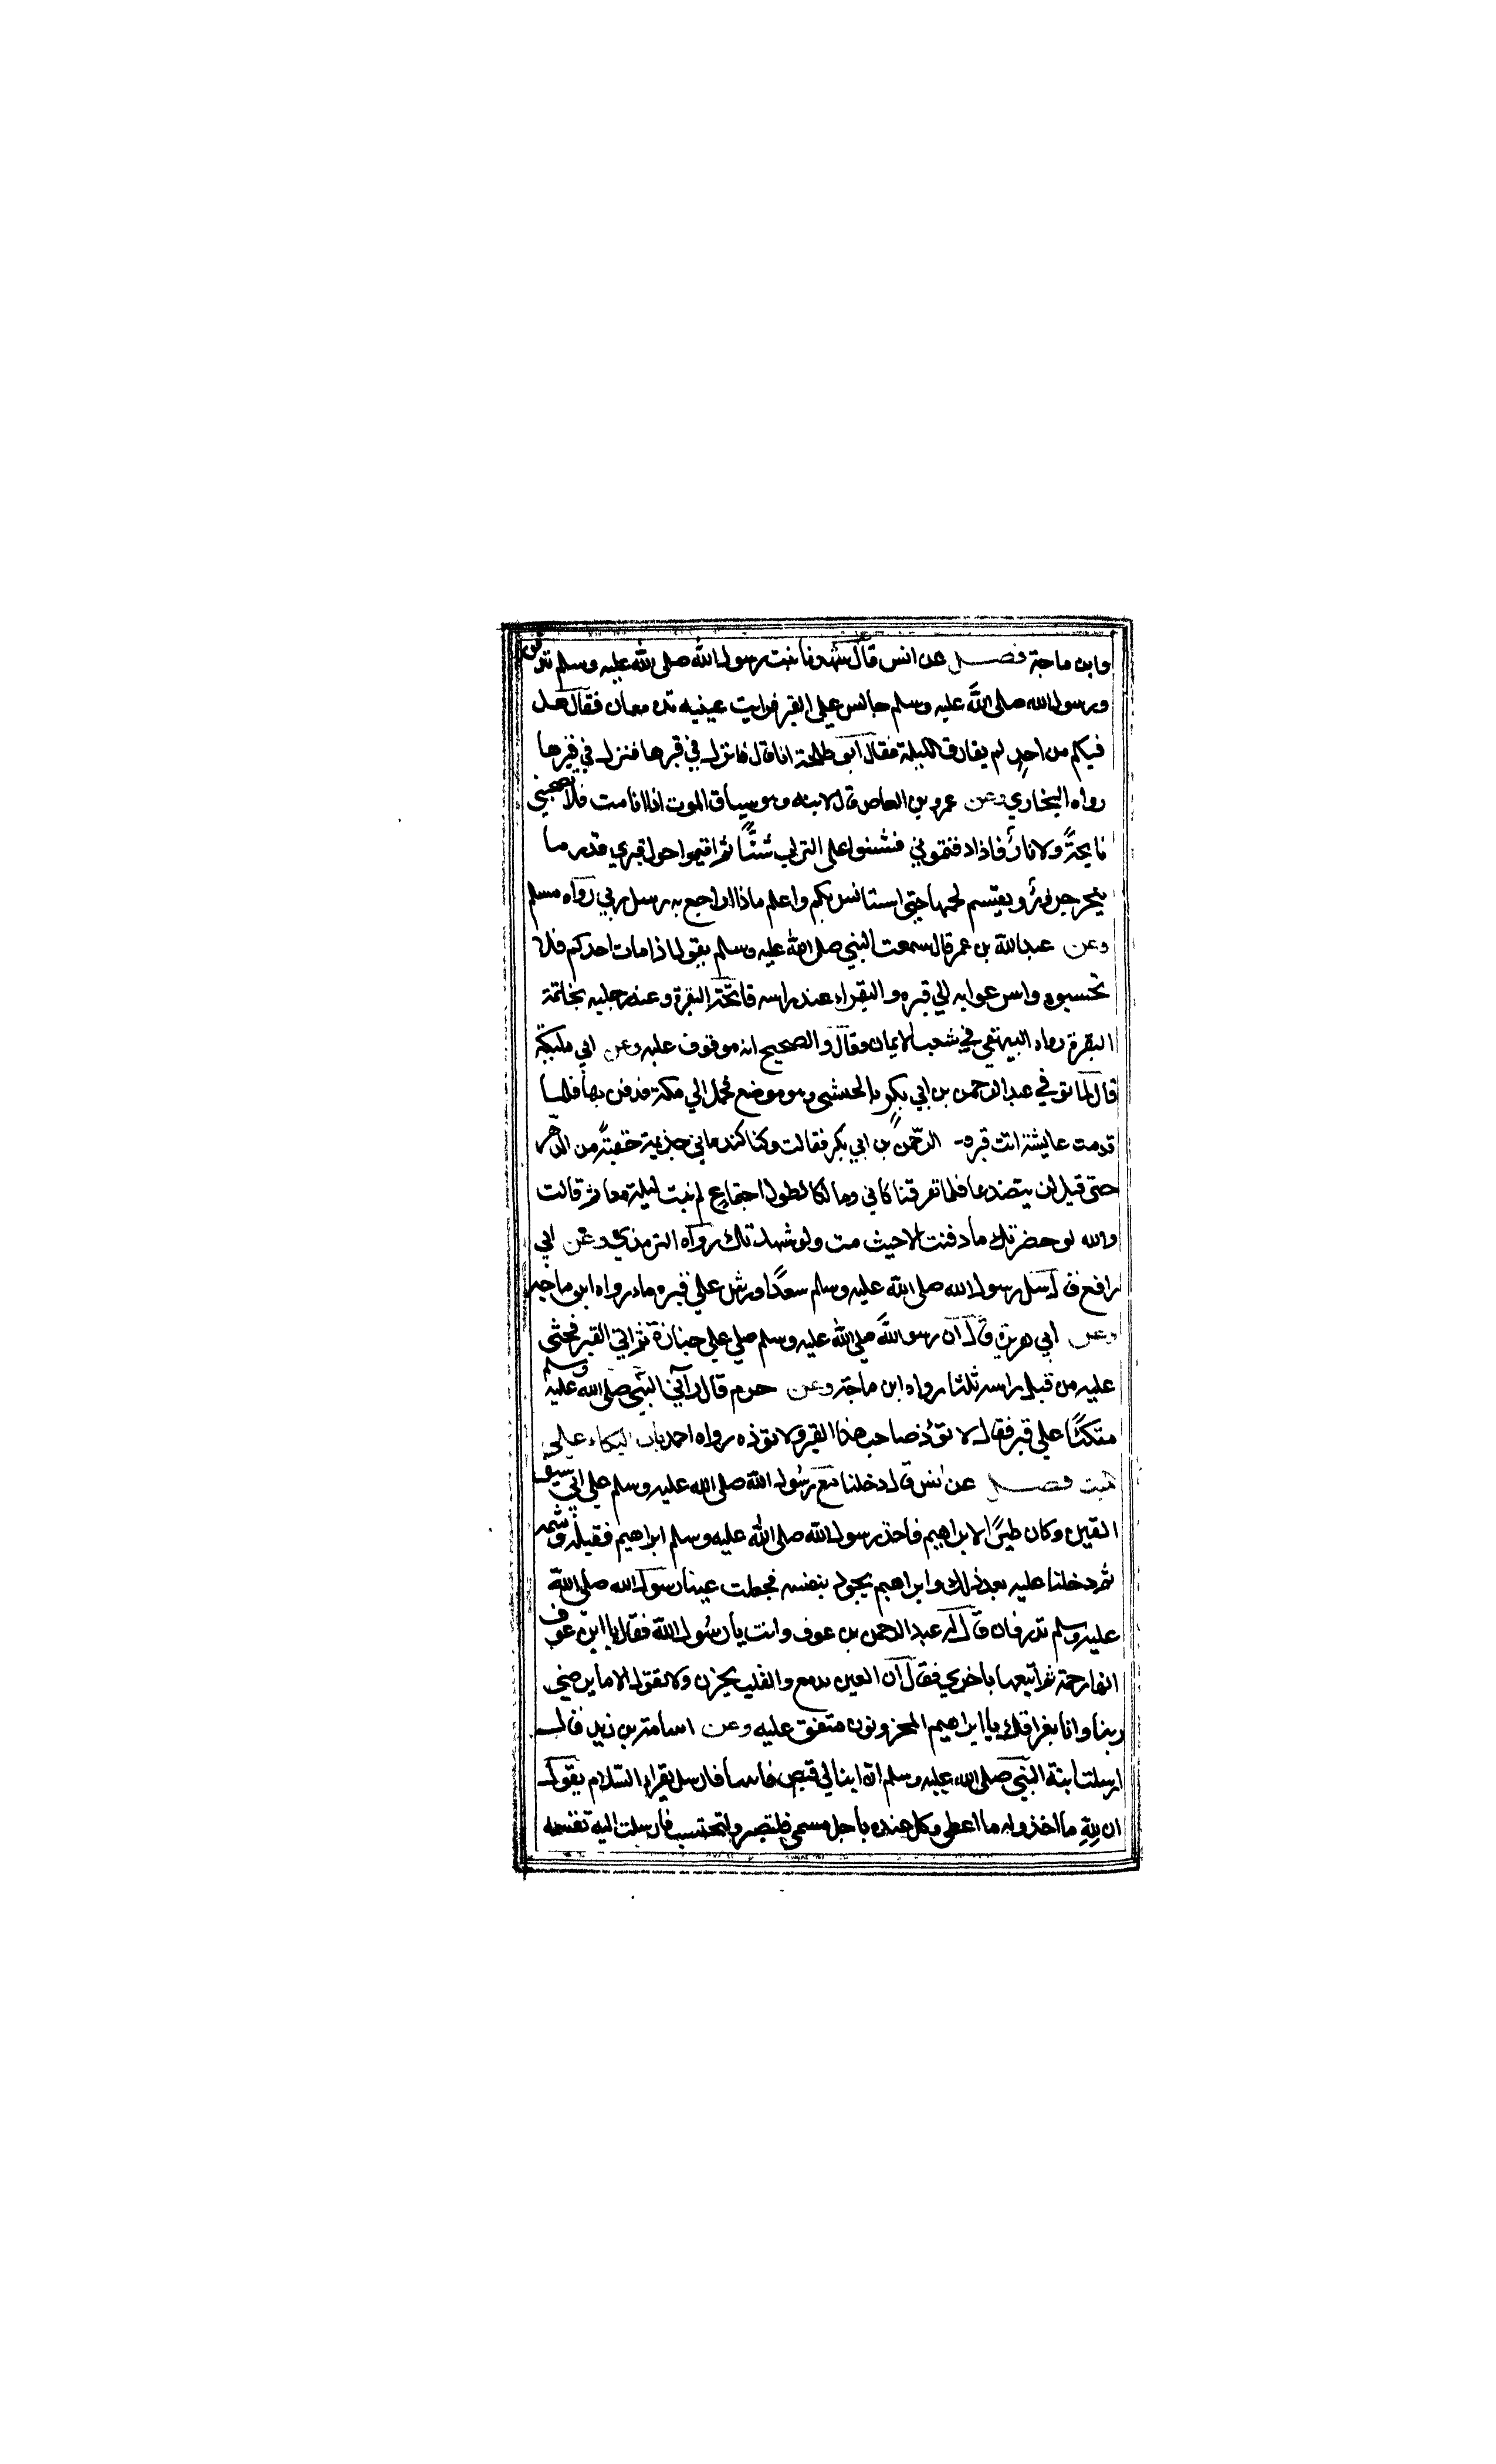 وابن ماجة فصل عن انس قال شهدنا بنت رسول الله صلى الله عليه وسلم تدفن
ورسول الله صلى الله عليه وسلم جالس علي القبر فرايت عينيه تدمعان فقال هل
فيكم من احدٍ لم يقارف الليلة فقال ابو طلحة انا قال فانزل في قبرها فنزل في قبرها
رواه البخاري وعن عمرو بن العاص قال لابنه وهو سياق الموت اذا انا مت فلا تصحبني
نايحةً ولا نارٌ فاذا دفنتموني فشنوا على التراب شنًّا ثم اقيموا حول قبري قدر ما
ينحر جزورٌ ويقسم لحمها حتى استانس بكم واعلم ماذا اراجع به رسل ربي رواه مسلم
وعن عبد الله بن عمر قال سمعت النبي صلى الله عليه وسلم يقول اذا مات احدكم فلا
تحسبوه واسرعوا به الي قبره واليقراء عند راسه فاتحة البقرة وعند رجليه بخاتمة
البقرة رواه البيهقي في شعب الايمان وقال والصحيح انه موقوف عليه وعن ابي مليكة
قال لما توفي عبد الرحمن بن ابي بكرٍ بالحبشى وهو موضع فحمل الي مكة فدفن بها فلما
قدمت عايشة اتت قبره الرحمن بن ابي بكر فقالت وكنا كندماني جذيمة حقبةً من الدهر
حتى قيل لن يتصدعا فلما تفرقنا كاني ومالكا لطول اجتماعٍ لم نبت ليلة معا ثم قالت
والله لو حضرتك ما دفنت الا حيث مت ولو شهدتك رواه الترمذي وعن ابي
رافع قال سل رسول الله صلى الله عليه وسلم سعدًا ورش علي قبره ماء رواه ابن ماجة
وعن ابي هريرة قال ان رسول الله صلي الله عليه وسلم صلي علي جنازة ثم اتي القبر فحثى
عليه من قبل راسه ثلثا رواه ابن ماجة وعن حزم قال راني النبي صلى الله عليه وسلم
متكئًا علي قبر فقال لا تؤذ صاحب هذا القبر ولا تؤذه رواه احمد باب البكاء علي
الميت فصل عن انس قال دخلنا مع رسول الله صلى الله عليه وسلم علي ابي سيف
القين وكان ظيرًا لابراهيم فاخذ رسول الله صلى الله عليه وسلم ابراهيم فقبله وشمه
ثم دخلنا عليه بعد ذلك وابراهيم يجود بنفسه فجعلت عينا رسول الله صلى الله
عليه وسلم تذرفان قال له عبد الرحمن بن عوف وانت يا رسول الله فقال يا ابن عوف
انها رحمة ثم اتبعها باخري فقال ان العين تدمع والقلب يحزن ولا نقول الا ما يرضي
ربنا وانا بفراقك يا ابراهيم لمحزونون متفق عليه وعن اسامة بن زيد قال
ارسلت ابنة النبي صلى الله عليه وسلم ان ابنا لي قبض فاتنا فارسل يقراء السلام يقول
ان لله ما اخذ وله ما اعطي وكل عنده باجل مسمي فلتصبر ولتحتسب فارسلت اليه تقسمه